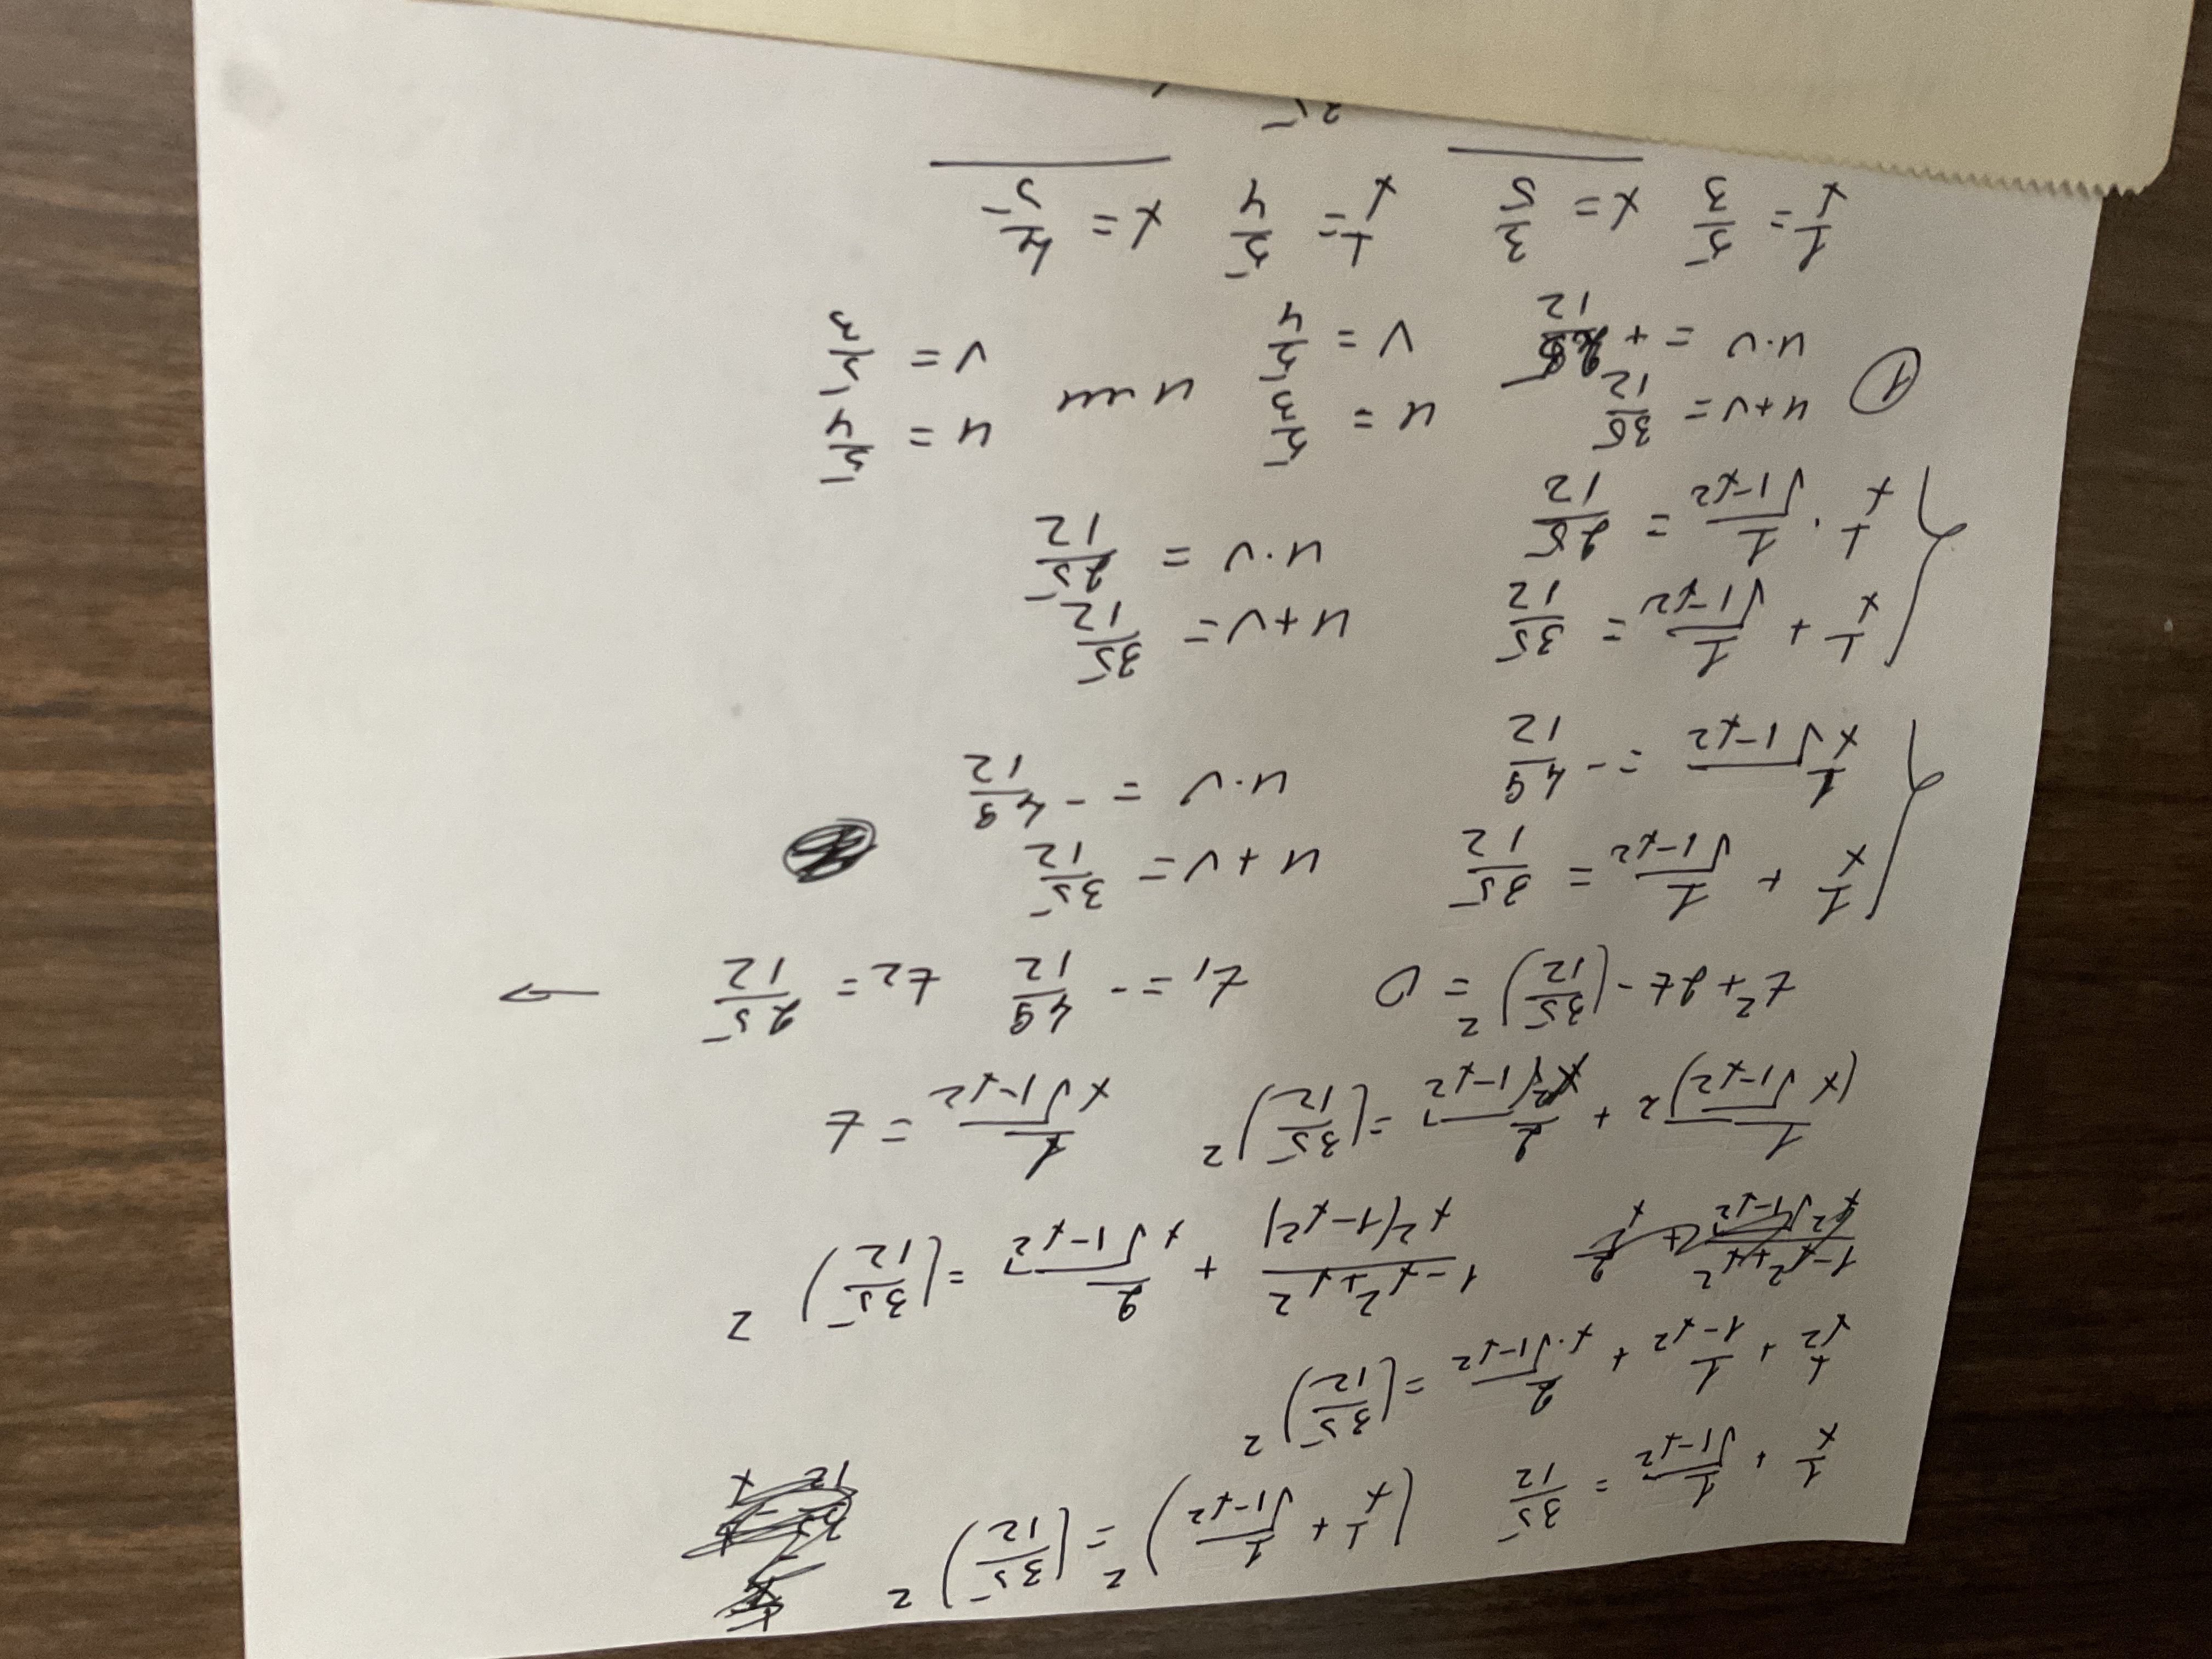 1/x + 1/√(1-x²) = 35/12 (1/x + 1/√(1-x²))² = (35/12)²
1/x² + 1/(1-x²) + 2/(x·√(1-x²)) = (35/12)²
(1-x²+x²)/(x²(1-x²)) + 2/(x√(1-x²)) = (35/12)²
1/(x√(1-x²))² + 2/(x√(1-x²)) = (35/12)² 1/(x√(1-x²)) = t
t² + 2t - (35/12)² = 0 t₁ = -49/12 t₂ = 25/12 →
1/x + 1/√(1-x²) = 35/12 u+v = 35/12
1/(x√(1-x²)) = -49/12 u·v = -49/12
1/x + 1/√(1-x²) = 35/12 u+v = 35/12
1/x · 1/√(1-x²) = 25/12 u·v = 25/12
① u+v = 35/12 u = 5/3 u = 5/4
u·v = + 25/12 v = 5/4 v = 5/3
1/x = 5/3 x = 3/5 1/x = 5/4 x = 4/5